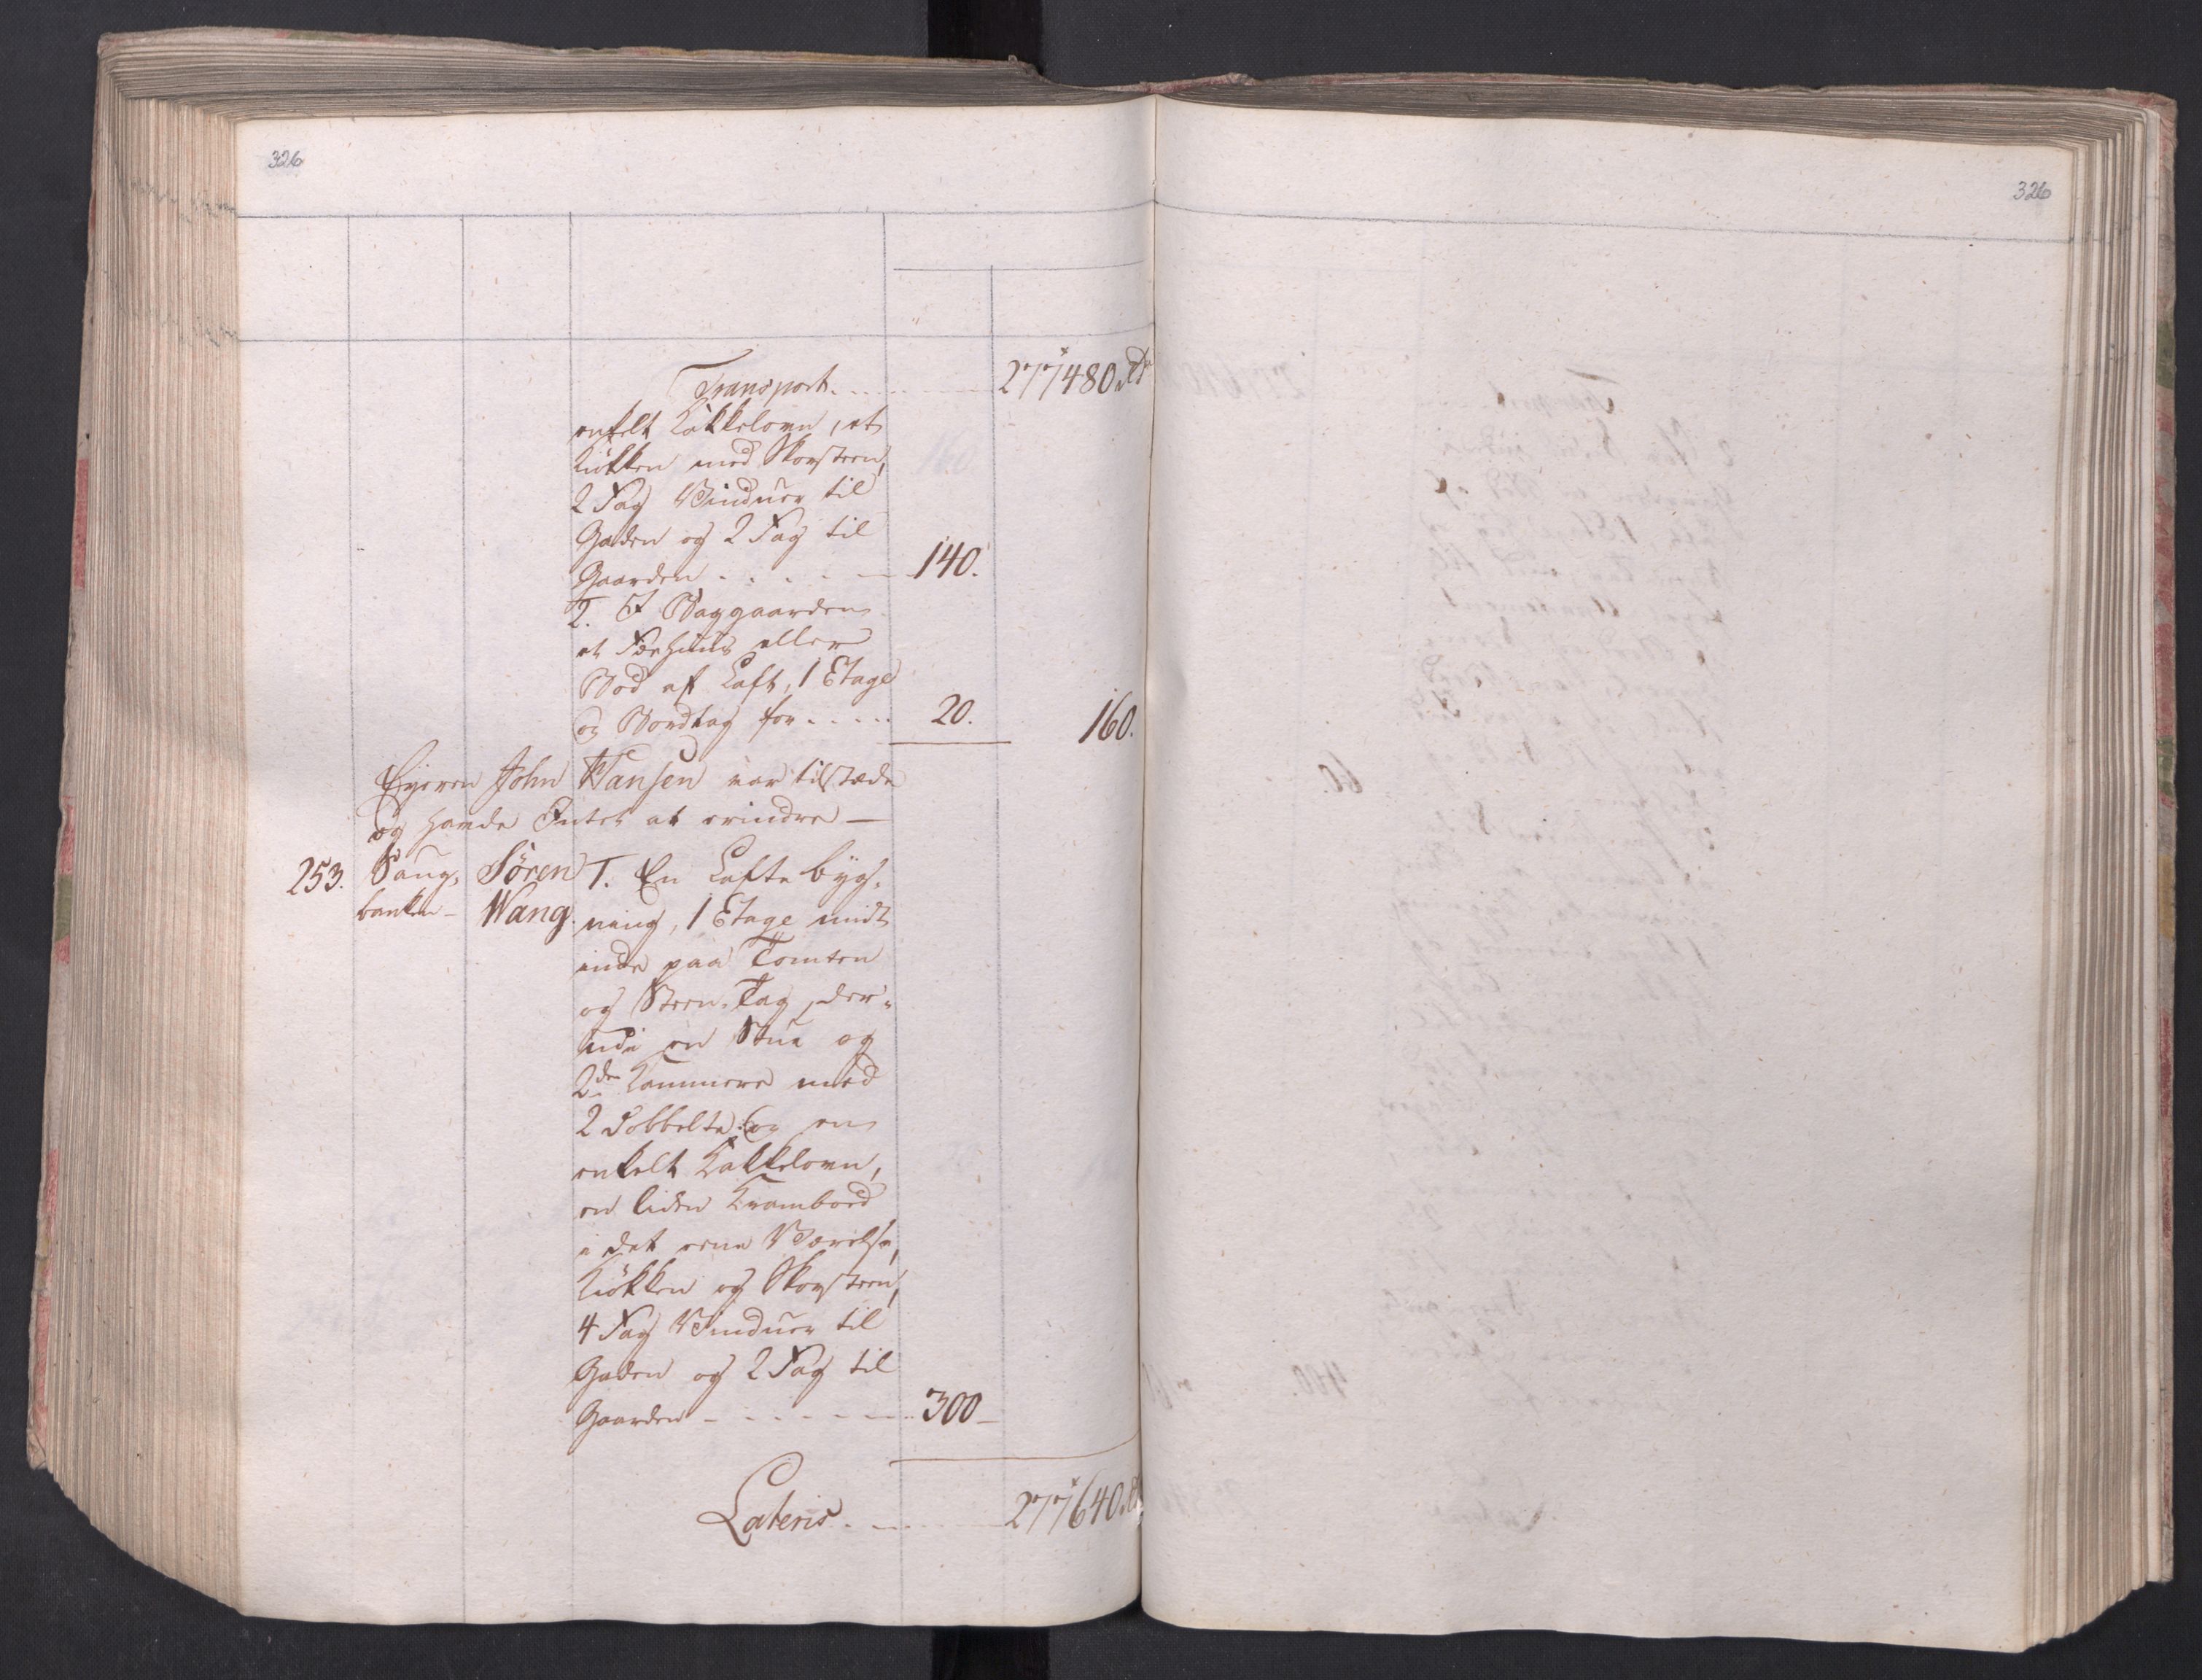 326
326
Transport. . . . . . . 277480 rdr
enkelt Kakkelovn, et
Kiökken med Skorsteen,
2 Fag Vinduer til
Gaden og 2 Fag til
Gaarden . . . . . — 140.
2. I Baggaarden
et Fæehuus eller
Bod af Laft, 1 Etage
og Bordtag for . . . . . 20. 160.
Eyeren John Hansen var tilstæde
og havde Intet at erindre —
253. Saug- Sören 1. En Lafte byg-
banken — Wang. ning, 1 Etage midt
inde paa Tomten
og Steen-Tag, der-
udi en Stue og
2de Kammere med
2 dobbelte og en
enkelt Kakkelovn,
en liden Krambod
i det eene Værelse,
Kiökken og Skorsteen,
4 Fag Vinduer til
Gaden og 2 Fag til
Gaarden — . . . . — 300 —
Lateris . . . 277640 rd